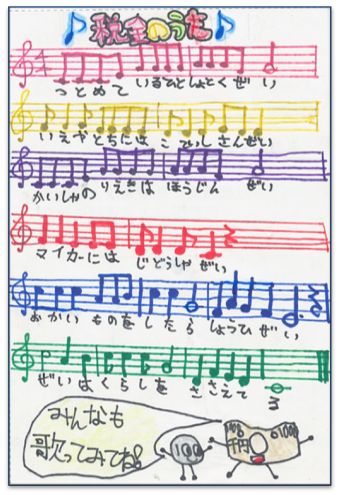 税金のうた
つとめて いるひとしょとくぜい
いえやとちには こていしさんぜい
かいしゃの りえきは ほうじんぜい
マイカーには じどうしゃぜい
おかいものをしたら しょうひぜい
ぜいはくらしを ささえてる
みんなも
歌ってみてね♪
100
千円
1000